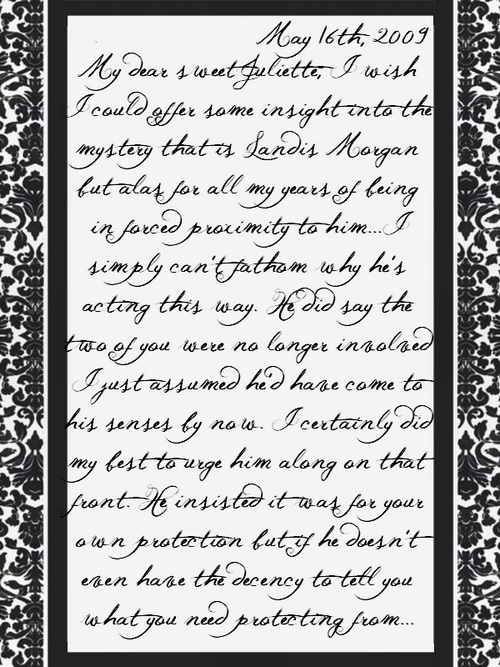 May 16th, 2009
My dear sweet Juliette, I wish
I could offer some insight into the
mystery that is Landis Morgan
but alas for all my years of being
in forced proximity to him... I
simply can't fathom why he's
acting this way. He did say the
two of you were no longer involved
I just assumed he'd have come to
his senses by now. I certainly did
my best to urge him along on that
front. He insisted it was for your
own protection but if he doesn't
even have the decency to tell you
what you need protecting from...